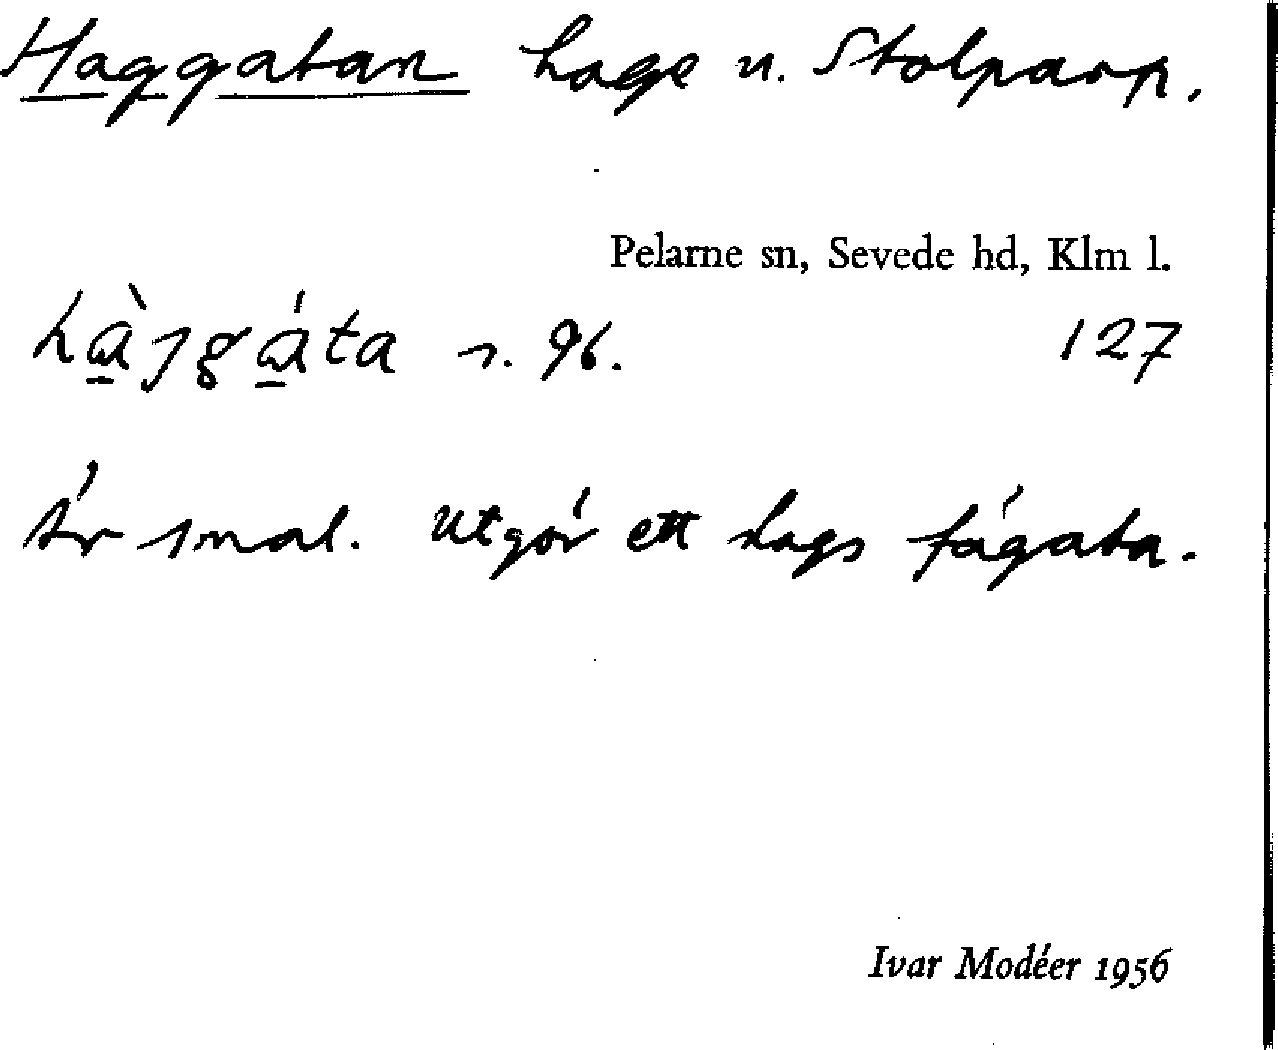 Haggatan hage u. Stolparp.
Pelarne sn, Sevede hd, Klm l.
hàjgáta s. 96. 127
Är smal. Utgör ett slags fägata.
Ivar Modéer 1956